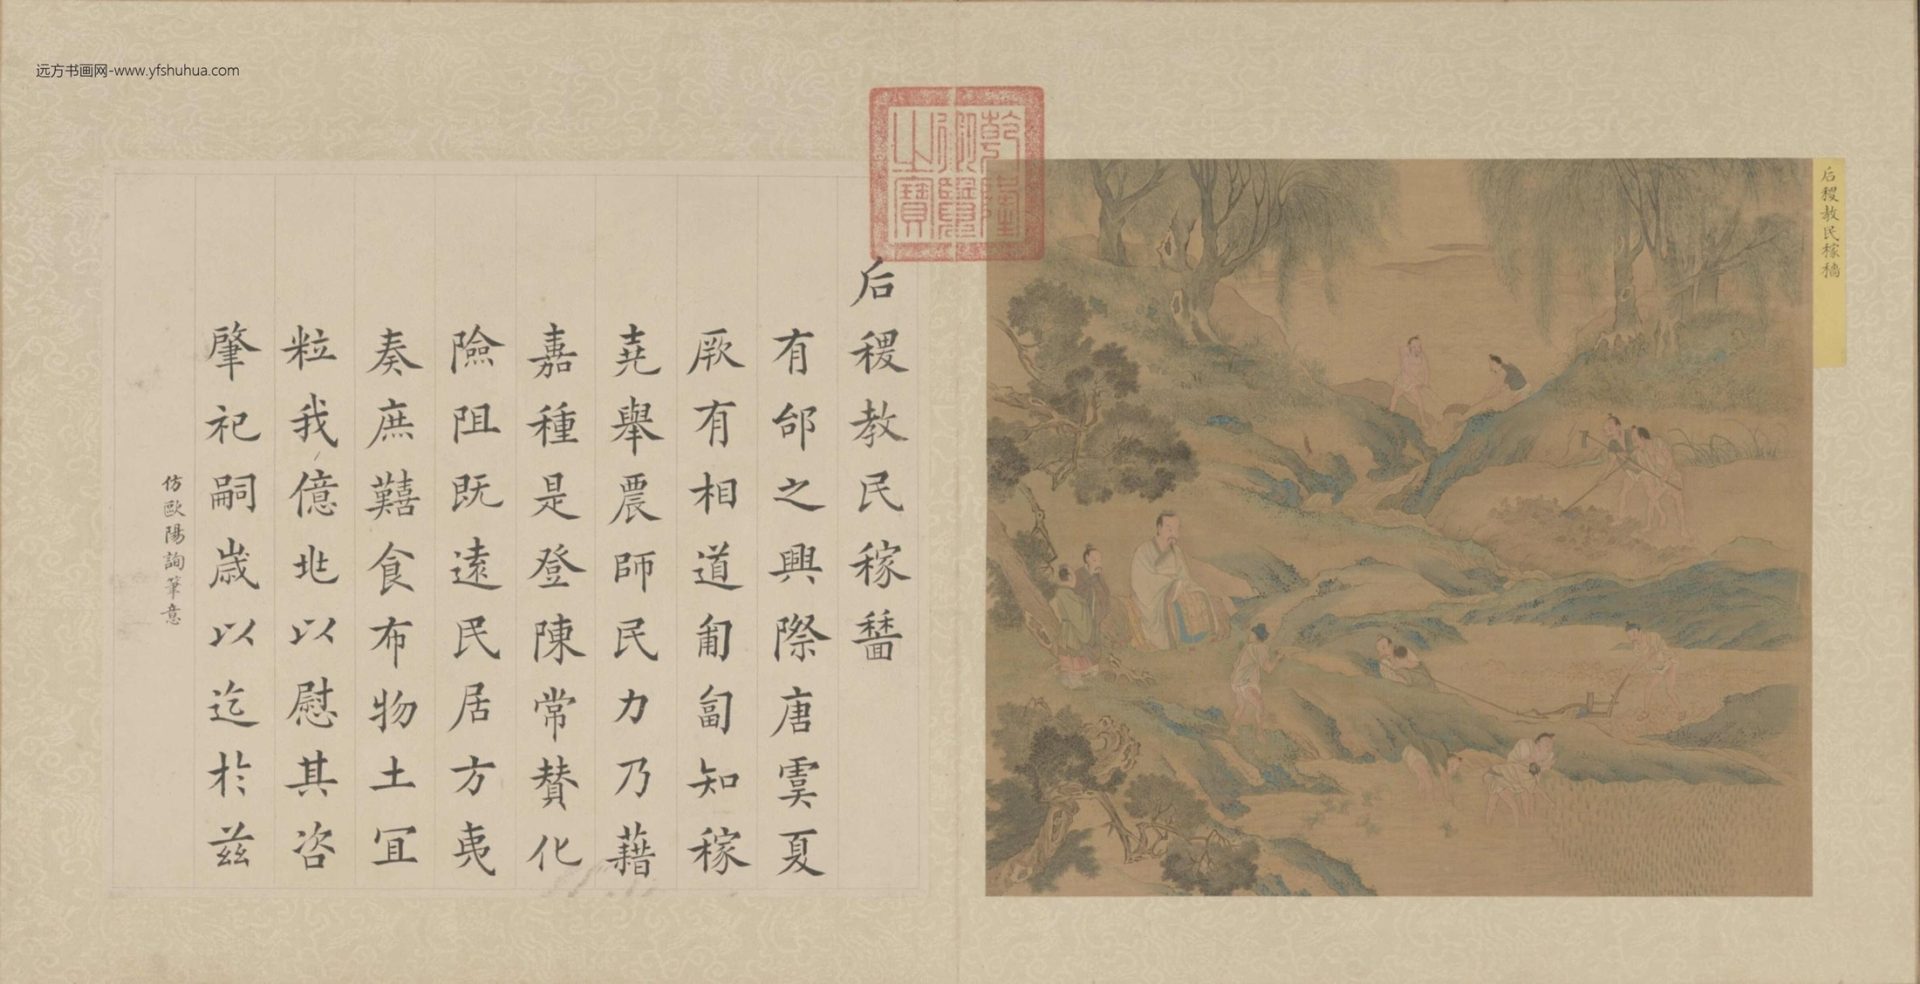 远方书画网-www.yfshuhua.com
后稷教民稼穡
乾隆
御覽
之寶
后稷教民稼穡
有邰之興際唐虞夏
厥有相道匍匐知稼
堯舉農師民力乃藉
嘉種是登陳常贊化
險阻既遠民居方夷
奏庶艱食布物土宜
粒我億兆以慰其咨
肇祀嗣歲以迄於茲
仿歐陽詢筆意